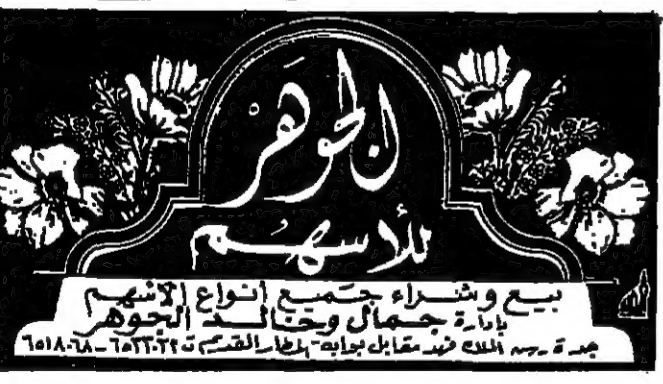 الجوهر
للأسهم
بيع وشراء جميع أنواع الأسهم
بإدارة جمال وخالد الجوهر
جدة - الملك فهد مقابل بوابة المطار القديم ت ٦٥٣٣٠٢٢ - ٦٥١٨٠٦٨